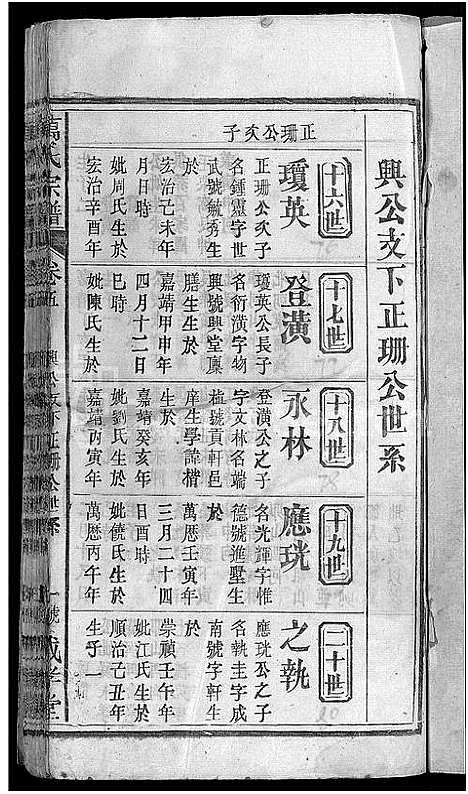 興公支下正珊公世系
正珊公次子
十六世
瓊英
正珊公次子
名鍾靈字世
武號毓秀生
宏治乙未年
月日時
妣周氏生於
宏治辛酉年
十七世
登潢
瓊英公長子
名衍潢字物
興號興堂廩
膳生生於
嘉靖甲申年
四月十二日
巳時
妣陳氏生於
十八世
永林
登潢公之子
字文林名端
植號貢軒邑
庠生學諱楷
生於
嘉靖癸亥年
妣劉氏生於
嘉靖丙寅年
十九世
應珖
名光輝字惟
德號進墅生
於
萬曆壬寅年
三月二十四
日酉時
妣饒氏生於
萬曆丙午年
二十世
之執
應珖公之子
名執圭字成
南號字軒生
於
崇禎壬午年
妣江氏生於
順治己丑年
生子一
萬氏宗譜
卷五
興公支下正珊公世系
一號